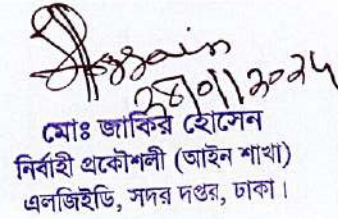 Hossain
মোঃ জাকির হোসেন
নির্বাহী প্রকৌশলী (আইন শাখা)
এলজিইডি, সদর দপ্তর, ঢাকা।